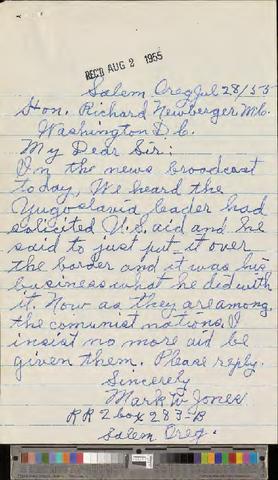 REC'D AUG 2 1955
Salem Oreg Jul 28/55
Hon. Richard Newberger M.C.
Washington D.C.
My Dear Sir:
On the news broadcast
today, We heard the
Yugoslavia leader had
solicited U.S. aid and he
said to just put it over
the border and it was his
business what he did with
it. Now as they are among
the comunist nations, I
insist no more aid be
given them. Please reply.
Sincerely
Mark W Jones
RR 2 box 283-B
Salem Oreg.